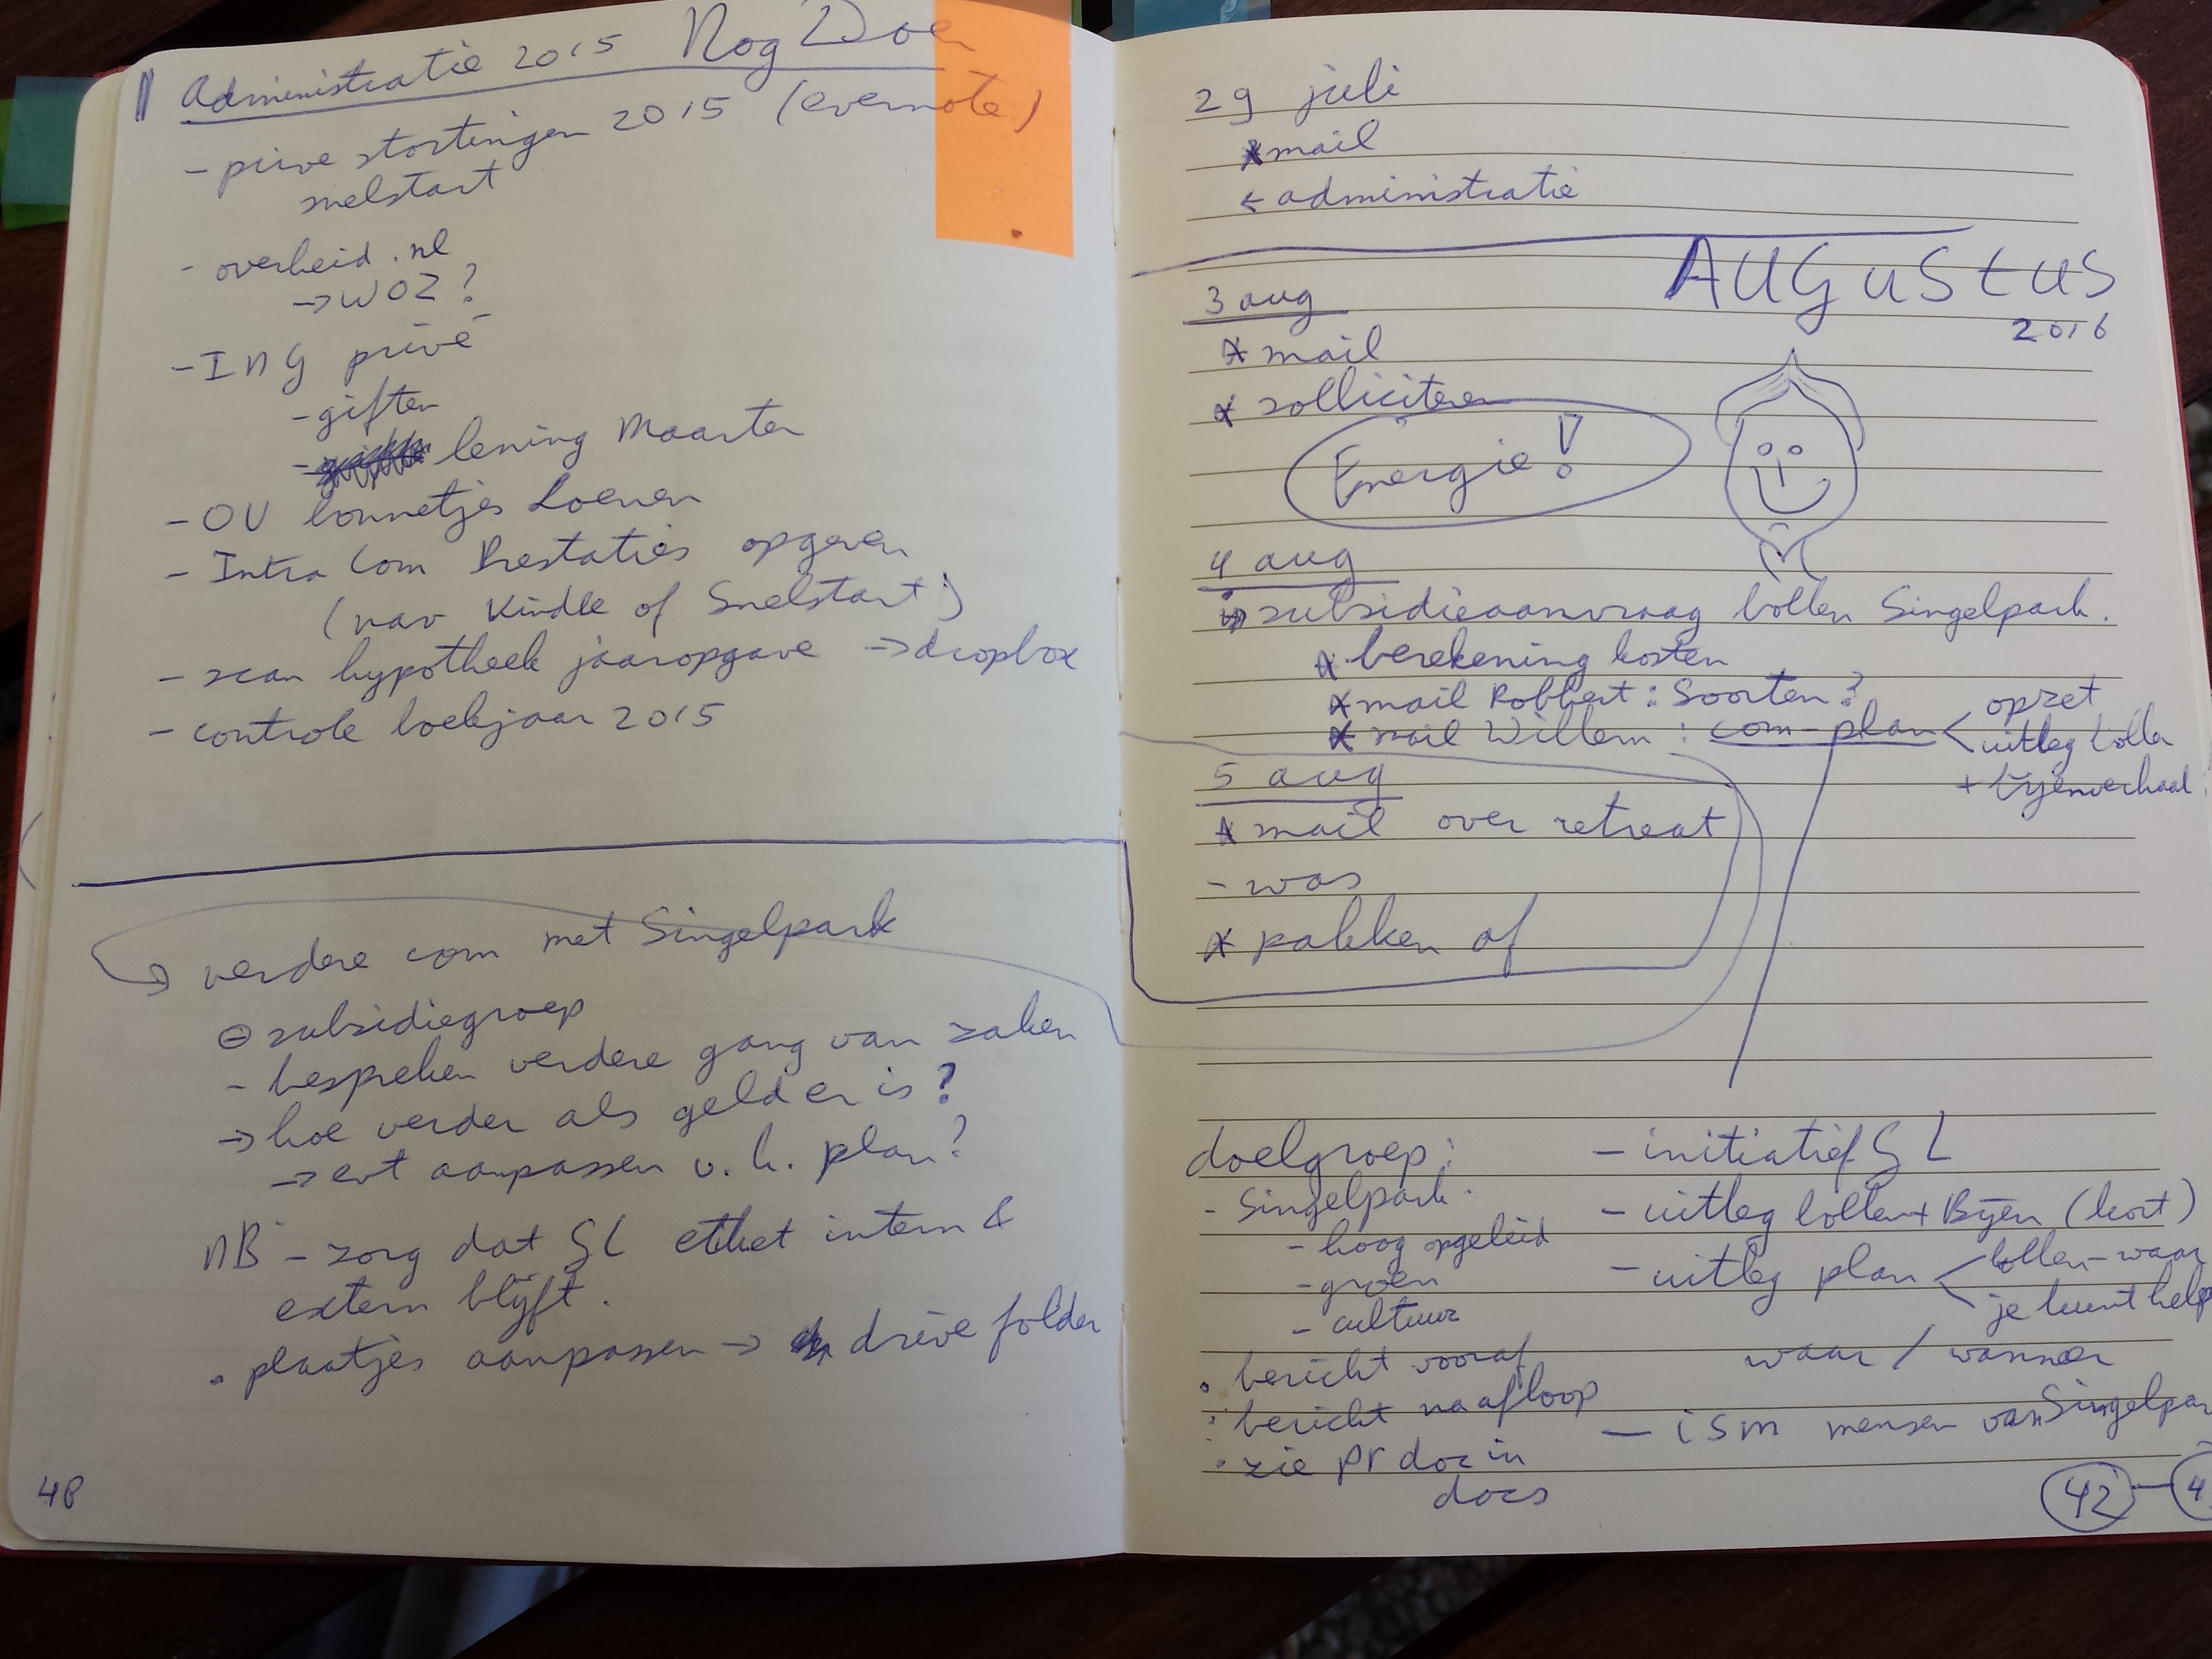 Administratie 2015 Nog Doen
- prive stortingen 2015 (evernote)
snelstart
- overheid.nl
-> WOZ?
- ING privé
- giften
- lening Maarten
- OV bonnetjes Loenen
- Intra Com Prestaties opgeven
(nav Kindle of Snelstart)
- scan hypotheek jaaropgave -> dropbox
- controle boekjaar 2015
-> verdere com met Singelpark
subsidiegroep
- bespreken verdere gang van zaken
-> hoe verder als geld er is?
-> evt aanpassen v.h. plan?
NB - zorg dat GL intern &
extern blijft.
• plaatjes aanpassen -> drive folder
48
29 juli
x mail
< administratie
AUGUSTUS
2016
3 aug
x mail
x solliciteren
Energie!
4 aug
subsidieaanvraag bollen Singelpark.
x berekening kosten
x mail Robbert: Soorten?
x mail Willem: com-plan < opzet
uitleg bollen
+ bijenverhaal
5 aug
x mail over retreat
- was
x pakken af
doelgroep:
- Singelpark
- hoog opgeleid
- groen
- cultuur
• bericht vooraf
• bericht na afloop
• zie pr doc in
docs
- initiatief GL
- uitleg bollen + Bijen (kort)
- uitleg plan < bollen - waar
je kunt help
waar / wanneer
- ism mensen van Singelpar
42 - 4